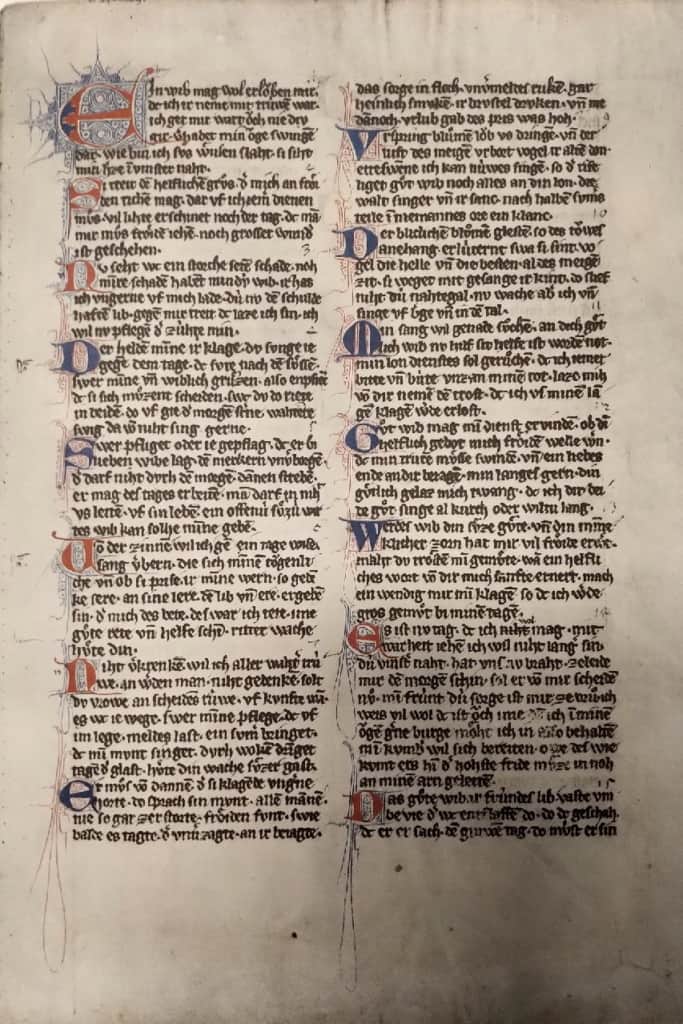 EIn wib mag wol erlǒben mir.
dc ich ir neme mit trúwen war.
ich ger mir wart ǒch nie dú
gir. v̓habet min ǒge swingē
dar. wie bin ich sus úwlen slaht. si siht
min h̓ze in vinster naht.
Si treit dē helflichē grůs. d̓ mich an frǒi
den riche mag. dar vf ich iem dienen
můs. vil lihte erschinet noch der tag. dc mā
mir můs frǒide iehē. noch grosser wund̓
ist geschehen.
Nv seht wc ein storche seitē schade. noh
minre schadē habent min dú wib. ir has
ich vngerne vf mich lade. dú nv dē schulde
haftē lib. gegē mir treit dc laze ich sin. ich
wil nv pflegē d̓ zúhte min.
Der heldē mīne ir klage. dv sunge ie
gegē dem tage. dc sure nach dē sůssē.
swer mīne vn̄ wiblich grůzen. also enpfiēc
dc si sich můzent scheiden. swc dv do riete
in beidē. do vf gie d̓ morgē st̓ne. wahtere
swig da vō niht sing gerne.
Swer pfliget oder ie gepflag. dc er bi
lieben wibe lag. dē merkern vnv̓borgē.
d̓ darf niht dvrh dē morgē. dānen strebē.
er mag des tages erbeitē. mā darf in niht
vs leitē. vf sin lebē. ein offeniv sůziv wir
tes wib kan solhe mīne gebē.
Vō der zinnē wil ich gē. ein tage wise.
sang v̓bern. die sich mīnēt tǒgenli
chē vn̄ ob si prise. ir mīne wern. so gedē
ke sere. an sine lere. dē lib vn̄ ere. ergebē
sin. d̓ mich des bete. des war ich tete. ime
gůte rete vn̄ helfe schē. ritter wache
hv̓te din.
Niht v̓krenkē wil ich aller waht̓ trú
we. an w̓den man. niht gedenke solt
dv vrowe an scheidēs rúwe. vf kvnfte wā.
es wc ie wege. swer mīne pflege. dc vf
im lege. meldes last. ein sum̓ bringet.
dc mī mvnt singet. dvrh wolkē dringet
tagēd̓ glast. hv̓te din wache sv̓zer gast.
Er můs vō dannē. d̓ si klagē vngerne
horte. do sprach sin mvnt. allē mānē.
nie so gar zerstorte. frǒiden funt. swie
balde es tagte. d̓ vnv̓zagte. an ir beiagte.
das sorge in floch. vnv̓meldes rukē. gar
heinlich smvkē. ir brvstel drvken. vn̄ me
dēnoch. vrlub gab des pris was hoh.
Vrsprung blůmē lǒb vs dringē. vn̄ der
luft des meigē vrbort vogel ir altē don.
etteswene ich kan núwes singē. so d̓ rife
liget gůt wib noch alles an din lon. die
walt singer vn̄ ir sanc. nach halbē svms
teile in niemannes ore ein klanc.
Der bliclichē blůmē glestē. so des tǒwes
anehang. erlúternt swa si sint. vo
gel die hellē vn̄ die besten. al des meigē
zit. si wegent mit gesange ir kint. do slief
niht dú nahtegal. nv wache ab̓ ich vn̄
singe vf b̓ge vn̄ in dē tal.
Min sang wil genade sůchē. an dich gůt
lich wib nv hilf sit helfe ist worden not.
min lon dienstes sol gerůchē. dc ich iemer
bitte vn̄ biute vnz an minē tot. laze mih
vō dir nemē dē trost. dc ich vs minē lā
gē klagē w̓de erlost.
Gůt wib mag mī dienst ervindē. ob dī
helflich gebot mich frǒidē welle w̓n.
dc min truren mv̓sse swindē. vn̄ ein liebes
ende an dir beiagē. min langes gern. din
gůtlich gelaz mich twang. dc ich dir bei
de gůt singe al kurtz oder wiltu lang.
Werdes wib din sv̓ze gůte. vn̄ din mīne
klicher zorn hat mir vil frǒide erwe.
maht dv trosten mī gemůte. wā ein helfli
ches wort vō dir mich sanfte ernert. mach
ein wendig mir mī klagē. so dc ich w̓de
gros gemůt bi minē tagē.
Es ist nv tag. dc ich wol mag. mit
warheit iehē ich wil niht lang sin.
dú vinst̓ naht. hat vns nv braht. ze leide
mir dē morgē schin. sol er vō mir scheidē
nv. mī frúnt dú sorge ist mir ze vrů. ich
weis vil wol dc ist ǒch ime. dē ich in minē
ǒgē g̓ne burge. moht ich in also behaltē
mī kvmb̓ wil sich bereiten. owe des wie
kvmt ers hī d̓ hohste fride můze in noh
an minē arn geleiten.
Das gůte wib ir frúndes lib. vaste vm
be vie d̓ wc entslaffē do. do dc geschah.
dc er er sach. dē grawē tag. do můst er sin